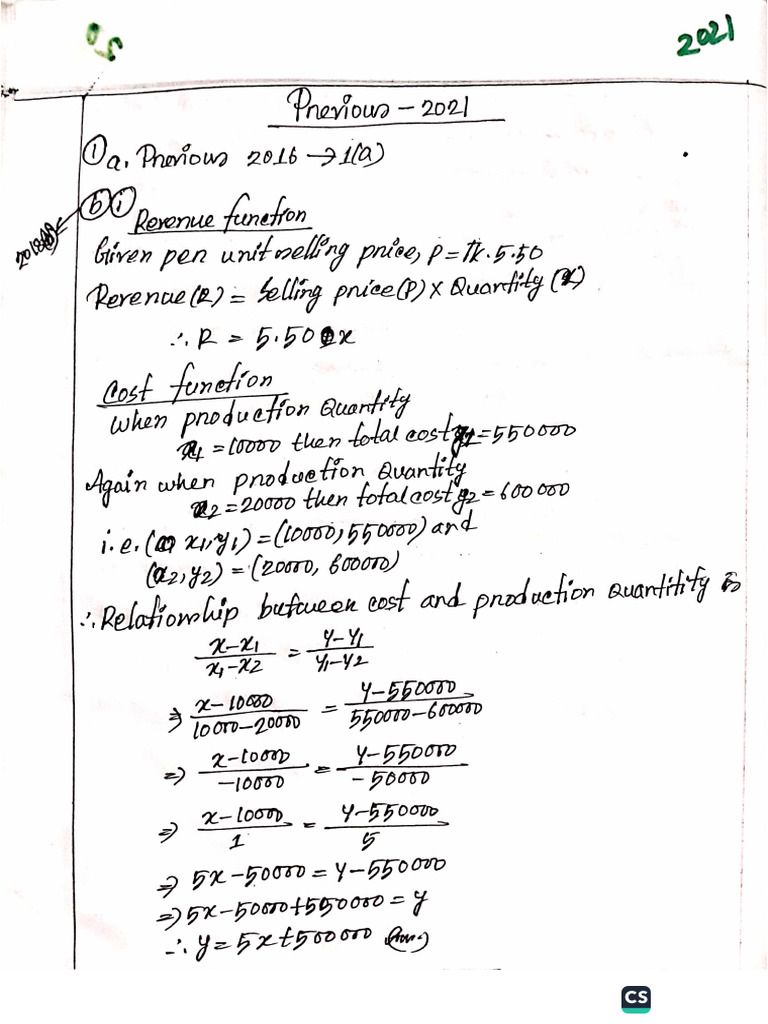 50
2021
Previous - 2021
① a. Previous 2016 → 1(a)
ⓑ ⓘ Revenue function
Given per unit selling price, P = Tk. 5.50
Revenue (R) = Selling price (P) × Quantity (x)
∴ R = 5.50 x
Cost function
When production Quantity
x1 = 10000 then total cost y1 = 550000
Again when production Quantity
x2 = 20000 then total cost y2 = 600000
i.e. (x1, y1) = (10000, 550000) and
(x2, y2) = (20000, 600000)
∴ Relationship between cost and production Quantitity is
x-x1/x1-x2 = y-y1/y1-y2
⇒ x-10000/10000-20000 = y-550000/550000-600000
⇒ x-10000/-10000 = y-550000/-50000
⇒ x-10000/1 = y-550000/5
⇒ 5x-50000 = y-550000
⇒ 5x-50000+550000 = y
∴ y = 5x+500000
CS